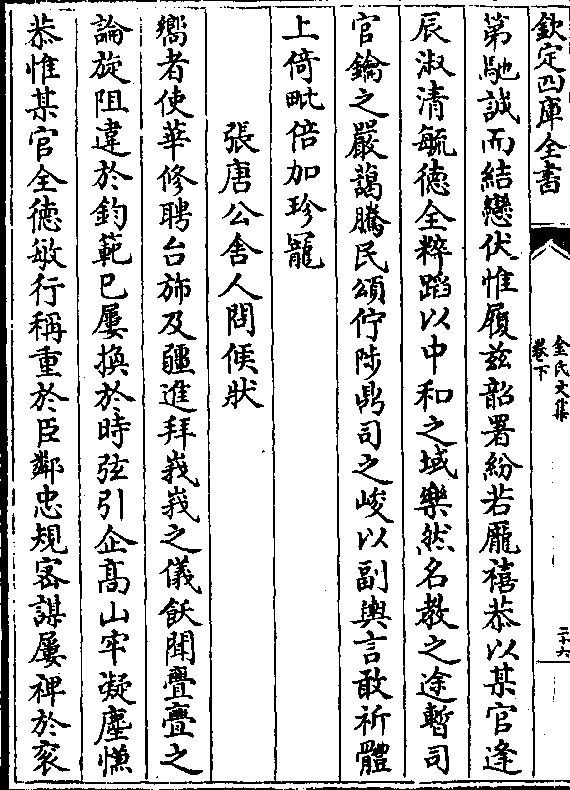 欽定四庫全書
金氏文集
卷下
二十六
第馳誠而結戀伏惟履兹韶署紛若厖禧恭以某官逢
辰淑清毓德全粹蹈以中和之域樂然名教之途暫司
官鑰之嚴藹騰民頌佇陟鼎司之峻以副輿言敢祈體
上倚毗倍加珍寵
張唐公舍人問候狀
嚮者使華修聘台斾及疆進拜峩峩之儀飫聞亹亹之
論旋阻違於鈞範已屢換於時弦引企高山牢凝塵慊
恭惟某官全德敏行稱重於臣鄰忠規宻謀屢裨於衮